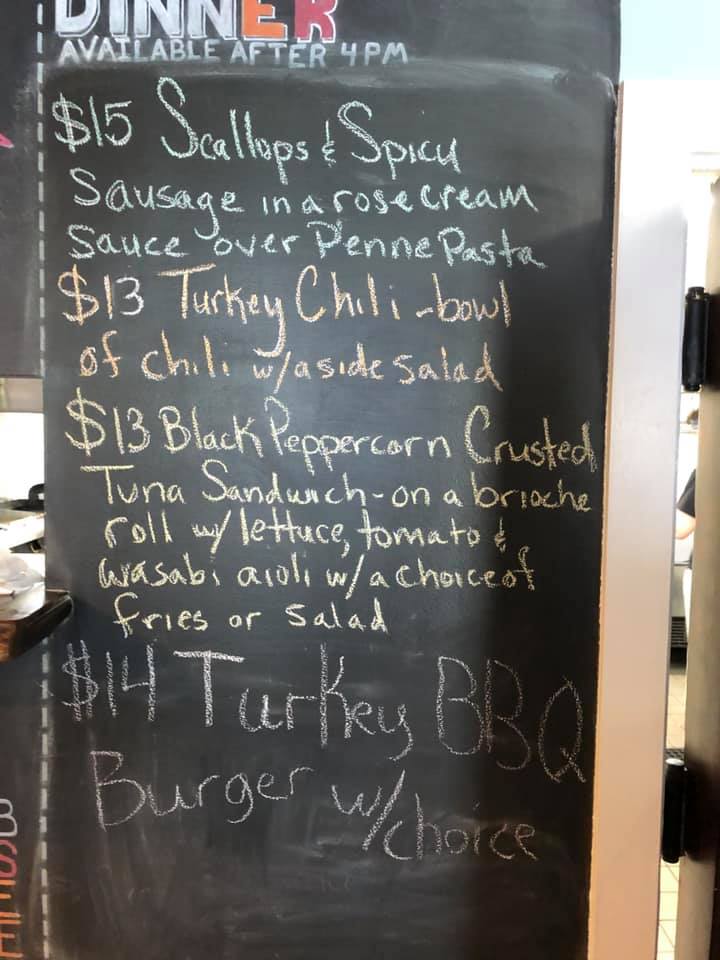 DINNER
AVAILABLE AFTER 4PM
$15 Scallops & Spicy
Sausage in a rose cream
Sauce over Penne Pasta
$13 Turkey Chili - bowl
of chili w/ a side salad
$13 Black Peppercorn Crusted
Tuna Sandwich - on a brioche
roll w/ lettuce, tomato &
wasabi aioli w/ a choice of
fries or salad
$14 Turkey BBQ
Burger w/ choice